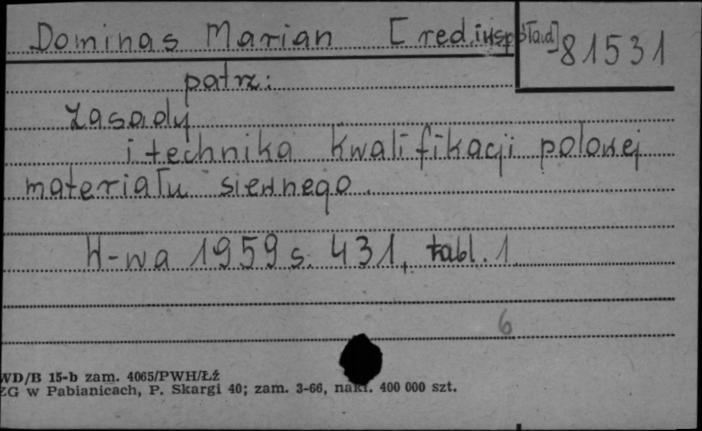 Dominas Marian [red. insp.]
81531
patrz:
Zasady
i technika kwalifikacji polowej
materiału siewnego.
W-wa 1959 s. 431, tabl. 1.
6
WD/B 15-b zam. 4065/PWH/Łż
ZG w Pabianicach, P. Skargi 40; zam. 3-66, nakł. 400 000 szt.